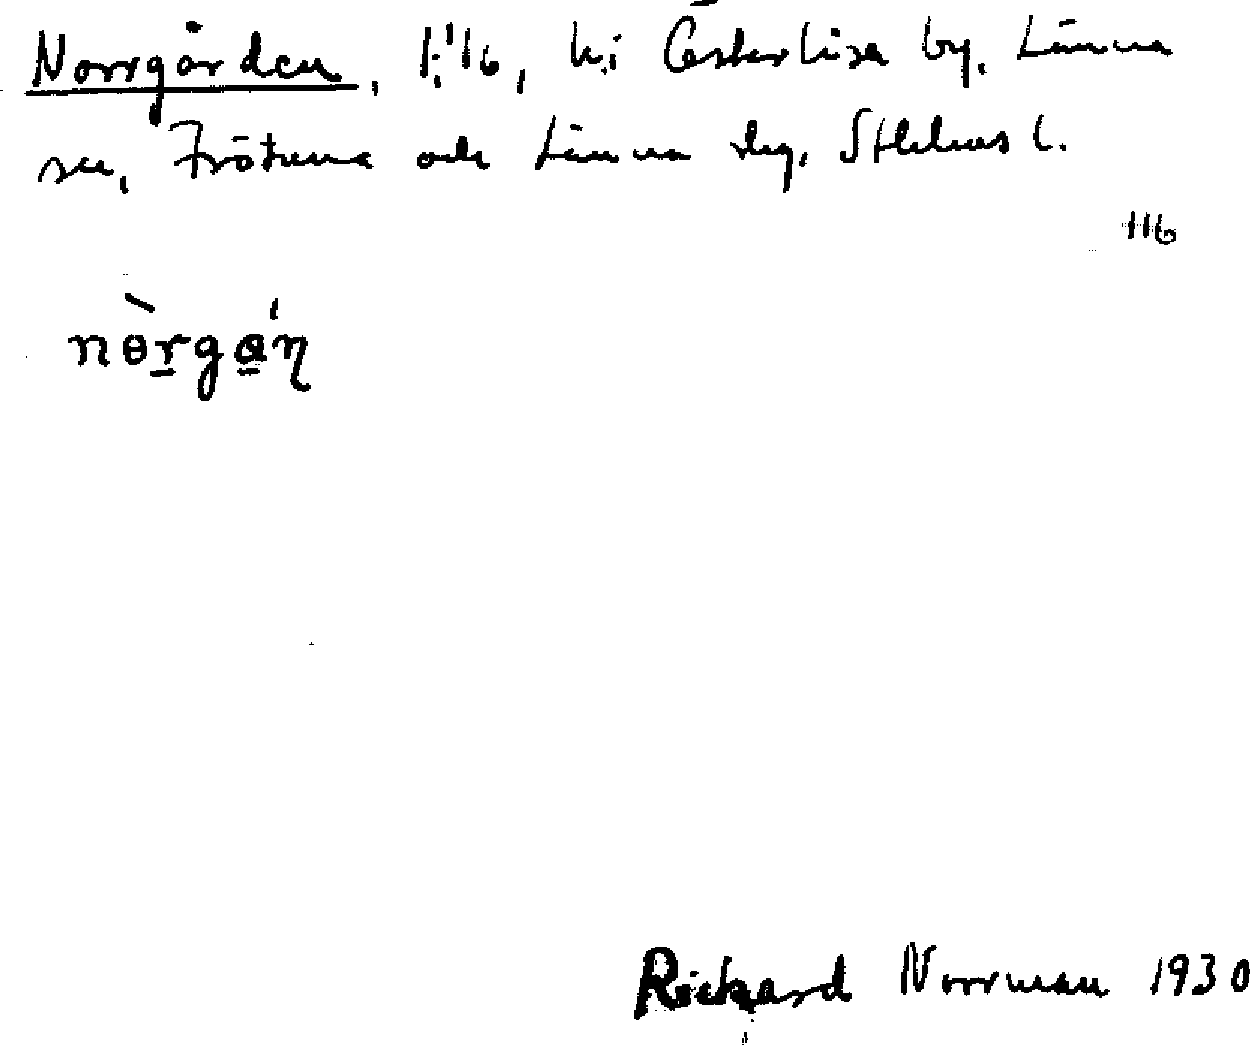 Norrgården, 1:16, h. i Österlisa by, Länna
sn, Frötuna och Länna skg, Sthlms l.
116
nòrgán
Rickard Norrman 1930